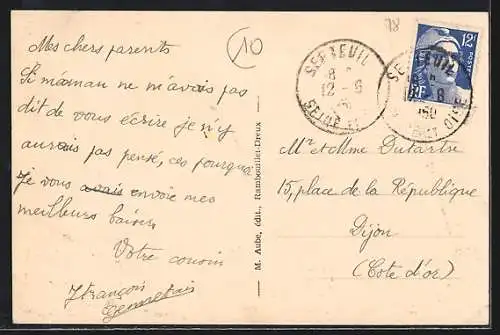 Mes chers parents
Si maman ne m'avais pas
dit de vous écrire je n'y
aurais pas pensé, ces pourquoi
Je vous avais envoie mes
meilleurs baisers
Votre cousin
François
M. Aube, édit., Rambouillet-Dreux
10
78
SEPTEUIL
12 - 6
SEINE ET
12F
POSTES
RF
SEPTEUIL
OISE
Mr et Mme Dutartre
15, place de la République
Dijon
(Cote d'or)